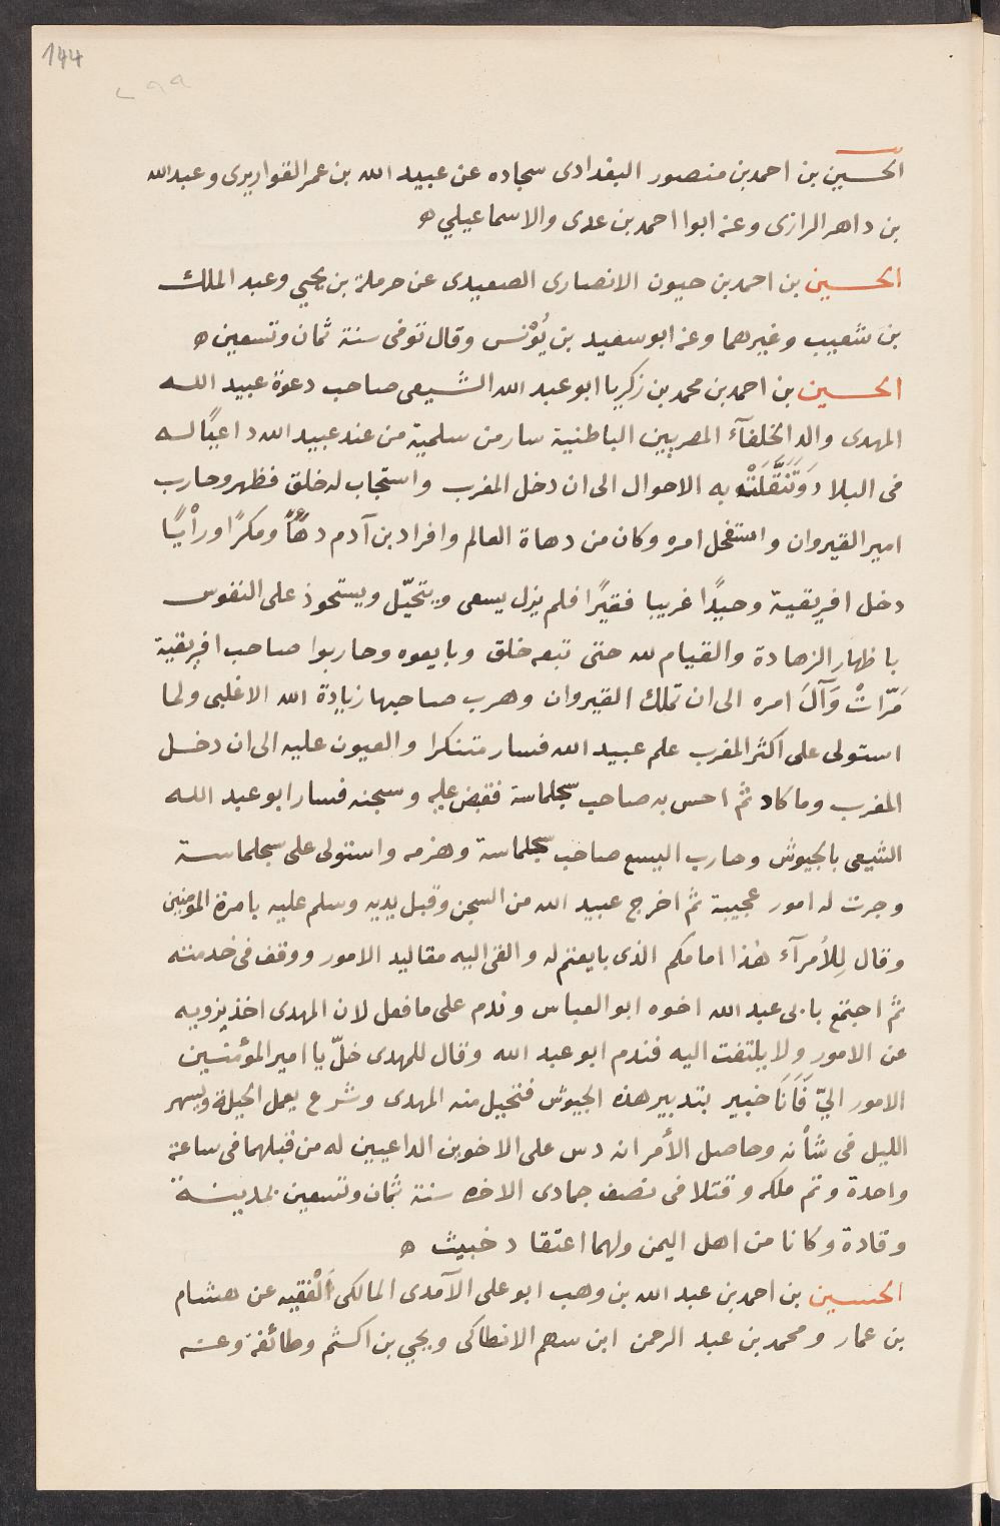 144
٢٩٩
الحسين بن احمد بن منصور البغدادى سجاده عن عبيد الله بن عمر القواريرى وعبد الله
بن داهر الرازى وعنه ابوا احمد بن عدى والاسماعيلي ه
الحسين بن احمد بن حيون الانصارى الصعيدى عن حرملة بن يحيي وعبد الملك
بن شعيب وغيرهما وعنه ابو سعيد بن يُوْنس وقال توفى سنة ثمان وتسعين ه
الحسين بن احمد بن محمد بن زكريا ابو عبد الله الشيعى صاحب دعوة عبيد الله
المهدى والد الخلفآء المصريين الباطنية سار من سلمية من عند عبيد الله داعيًا له
فى البلاد وَتَنَقَّلَتْ به الاحوال الى ان دخل المغرب واستجاب له خلق فظهر وحارب
امير القيروان واستفحل امره وكان من دهاة العالم وافراد بن آدم دهًآ ومكرًا ورأيًا
دخل افريقية وحيدًا غريبا فقيرًا فلم يزل يسعى ويتحيّل ويستحوذ على النفوس
باظهار الزهادة والقيام لله حتى تبعه خلق وبايعوه وحاربوا صاحب افريقية
مَرّاتْ وَآلَ امره الى ان تملك القيروان وهرب صاحبها زيادة الله الاغلبى ولما
استولى على اكثر المغرب علم عبيد الله فسار متنكرا والعيون عليه الى ان دخل
المغرب وما كاد ثم احس به صاحب سجلماسة فقبض عليه وسجنه فسار ابو عبد الله
الشيعى بالجيوش وحارب اليسع صاحب سجلماسة وهزمه واستولى على سجلماسة
وجرت له امور عجيبة ثم اخرج عبيد الله من السجن وقبل يديه وسلم عليه بامرة المؤمنين
وقال لِلأمرآء هٰذا امامكم الذى بايعتم له والقى اليه مقاليد الامور ووقف فى خدمته
ثم اجتمع بابى عبد الله اخوه ابو العباس وندم على ما فعل لان المهدى اخذ يزويه
عن الامور ولا يلتفت اليه فندم ابو عبد الله وقال للمهدى خلّ يا امير المؤمنين
الامور اليّ فَاَنَا خبير بتدبير هذه الجيوش فتخيل منه المهدى وشرع يعمل الحيلة ويسهر
الليل فى شأنه وحاصل الأمر انه دس على الاخوين الداعيين له من قبلهما فى ساعة
واحدة وتم ملكه وقتلا فى نصف جمادى الاخره سنة ثمان وتسعين بمدينة
وقادة وكانا من اهل اليمن ولهما اعتقاد خبيث ه
الحسين بن احمد بن عبد الله بن وهب ابو على الآمدى المالكى اَلْفقيه عن هشام
بن عمار ومحمد بن عبد الرحمن ابن سهم الانطاكى ويحيي بن اكثم وطائفة وعنه